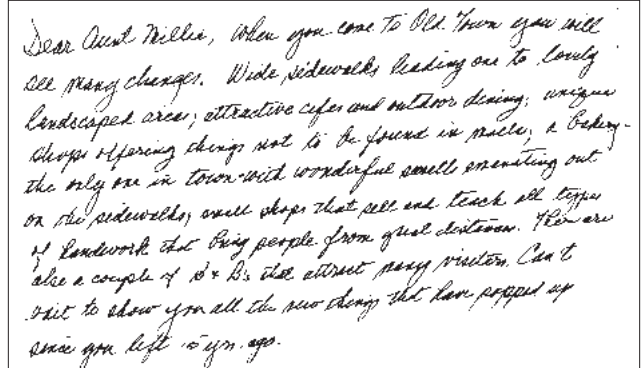 Dear Aunt Millie, When you come to Old Town you will
see many changes. Wide sidewalks leading one to lovely
landscaped areas; attractive cafes and outdoor dining; unique
shops offering things not to be found in malls; a bakery-
the only one in town-with wonderful smells emanating out
on the sidewalks; small shops that sell and teach all types
of handwork that bring people from great distances. There are
also a couple of B & B's that attract many visitors. Can't
wait to show you all the new things that have popped up
since you left 15 yrs. ago.